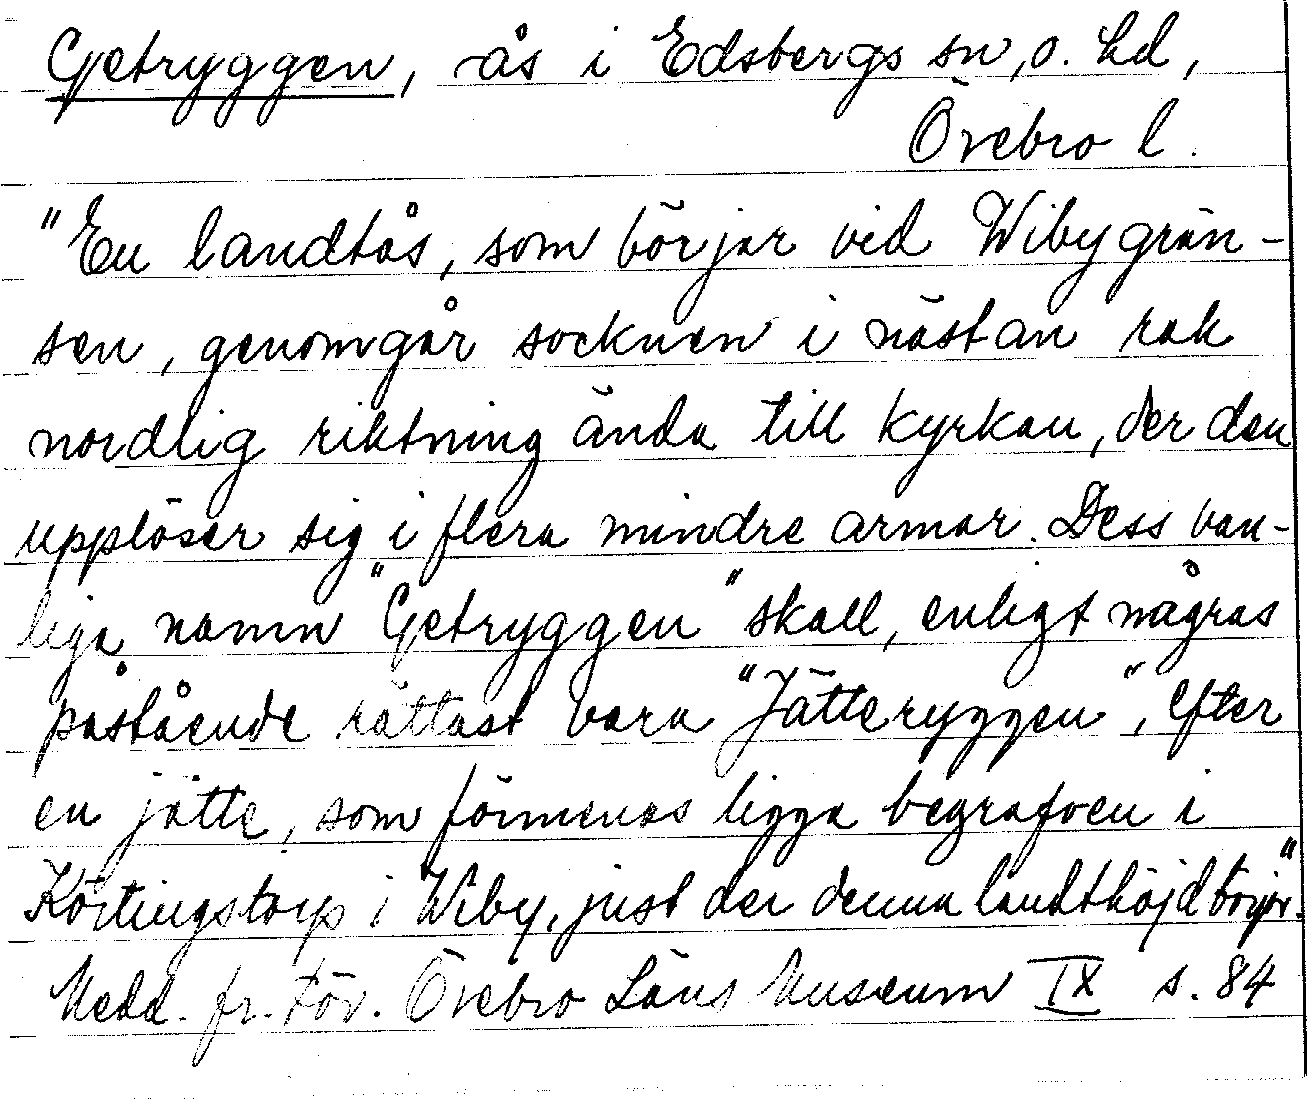 Getryggen, ås i Edsbergs sn, o. hd,
Örebro l.
"En landtås, som börjar vid Wibygrän-
sen, genomgår socknen i nästan rak
nordlig riktning ända till kyrkan, der den
upplöser sig i flera mindre armar. Dess van-
liga namn "Getryggen" skall, enligt någras
påstående rättast vara "Jätteryggen", efter
en jätte, som förmenas ligga begrafven i
Körtingstorp i Wiby, just der denna landthöjd börjar".
Medd. fr. För. Örebro Läns Museum IX s. 84